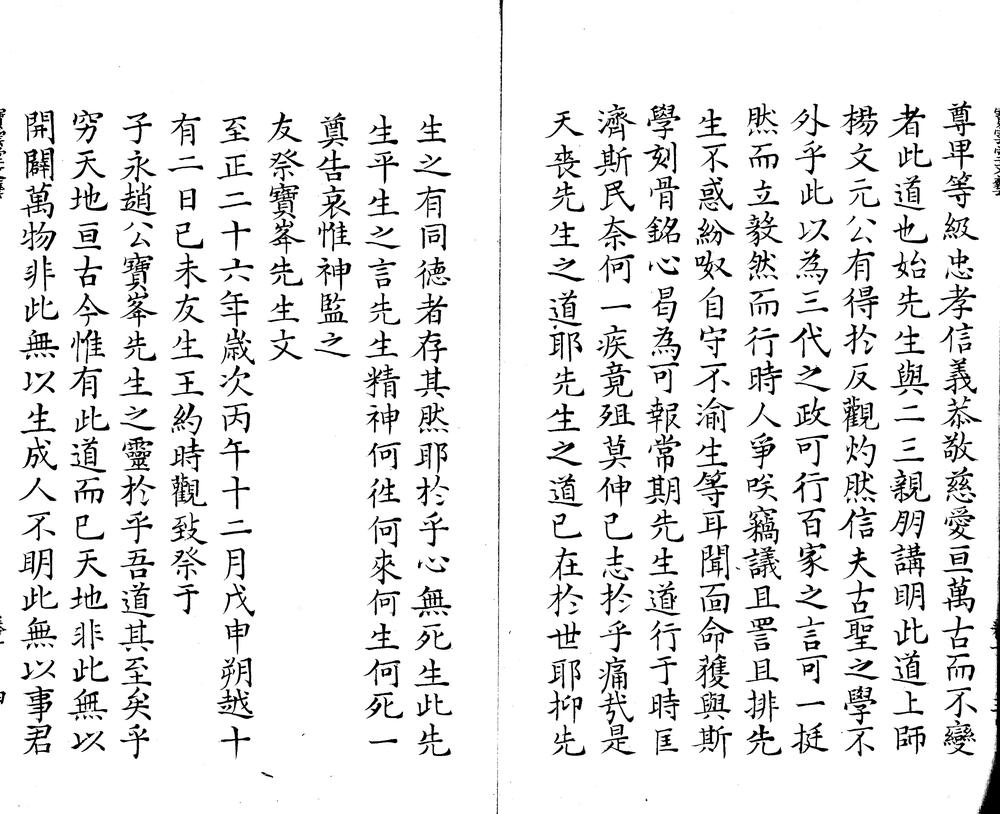 尊卑等級忠孝信義恭敬慈愛亘萬古而不變
者此道也始先生與二三親朋講明此道上師
楊文元公有得扵反觀灼然信夫古聖之學不
外乎此以為三代之政可行百家之言可一挺
然而立毅然而行時人爭咲竊議且詈且排先
生不惑紛呶自守不渝生等耳聞面命獲與斯
學刻骨銘心曷為可報常期先生遒行于時匡
濟斯民奈何一疾竟殂莫伸已志扵乎痛㦲是
天喪先生之道耶先生之道已在扵世耶抑先
生之有同德者存其然耶扵乎心無死生此先
生平生之言先生精神何徃何來何生何死一
奠告哀惟神監之
友祭寶峯先生文
至正二十六年歲次丙午十二月戊申朔越十
有二日己未友生王約時觀致祭于
子永趙公寶峯先生之靈扵乎吾道其至矣乎
穷天地亘古今惟有此道而已天地非此無以
開闢萬物非此無以生成人不明此無以事君